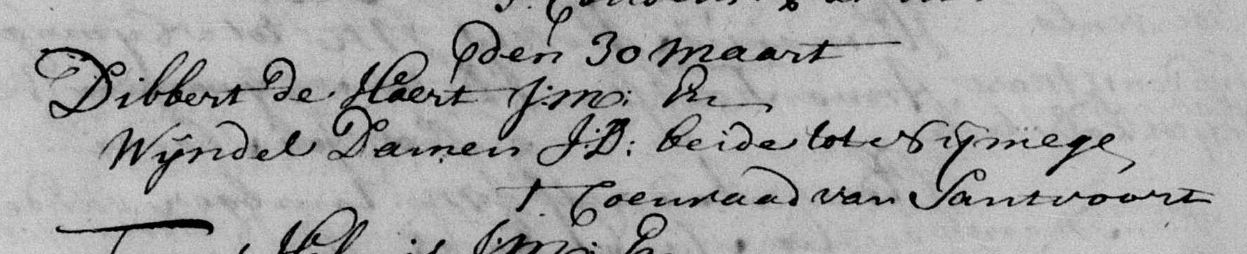 den 30 Maart
Dibbert de Haert J:M: En
Wijndel Damen J:D: beide tot Nijmege
T Coenraad van Santvoort
J:M: En